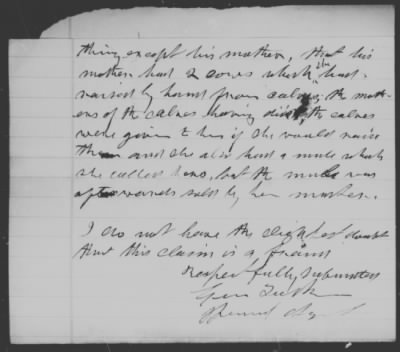 thing except his mother, that his
mother had 2 cows which she had
raised by hand from calves, the moth-
ers of the calves having died, the calves
were given to her if she would raise
them and she also had a mule which
she called hers, but the mule was
afterwards sold by her master.
I do not have the slightest doubt
that this claim is a fraud
Respectfully submitted
Special Agt